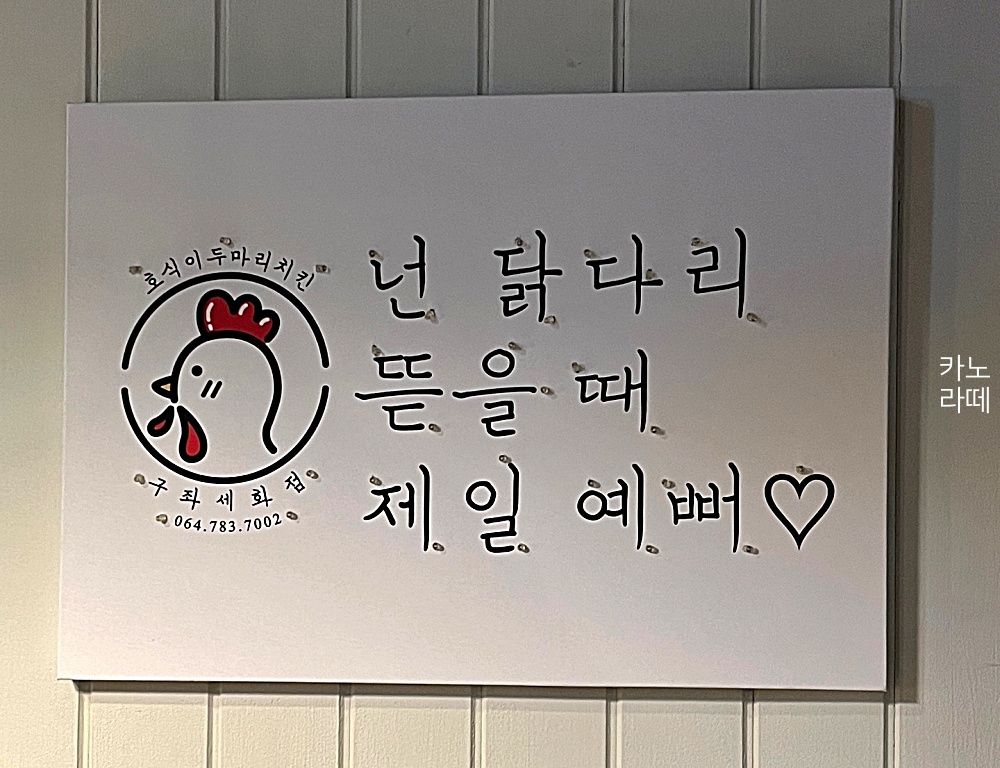 호식이두마리치킨
구좌세화점
064.783.7002
넌 닭다리
뜯을 때
제일 예뻐♡
카노
라떼